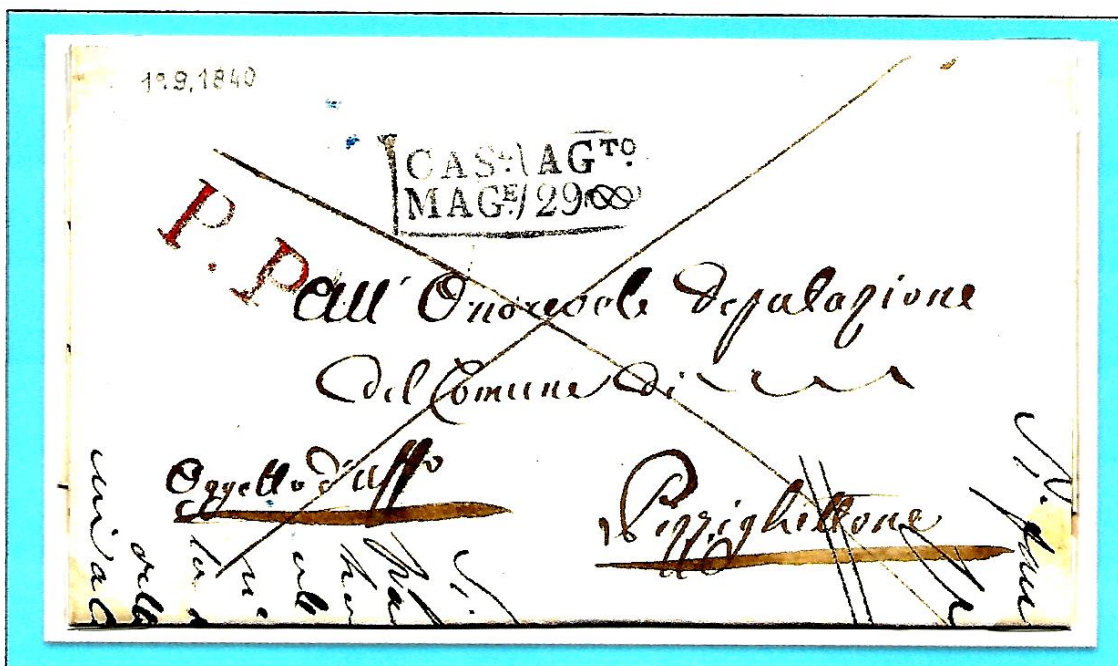 1º.9.1840
CAS: AGTO
MAGE. 29
P. P.
All' Onorevole Deputazione
del Comune di
Oggetto d'uffo
Pizzighettone